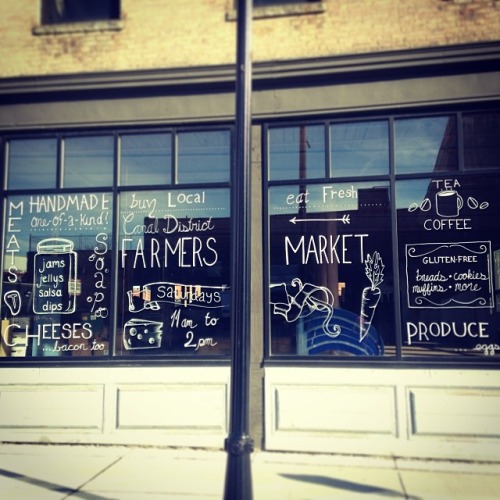 MEATS
HANDMADE
one-of-a-kind!
jams
jellys
salsa
dips
Soaps
CHEESES
...bacon too
buy Local
Canal District
FARMERS
Saturdays
11am to
2pm
eat Fresh
MARKET
TEA
COFFEE
GLUTEN-FREE
breads • cookies
muffins • more
PRODUCE
...eggs